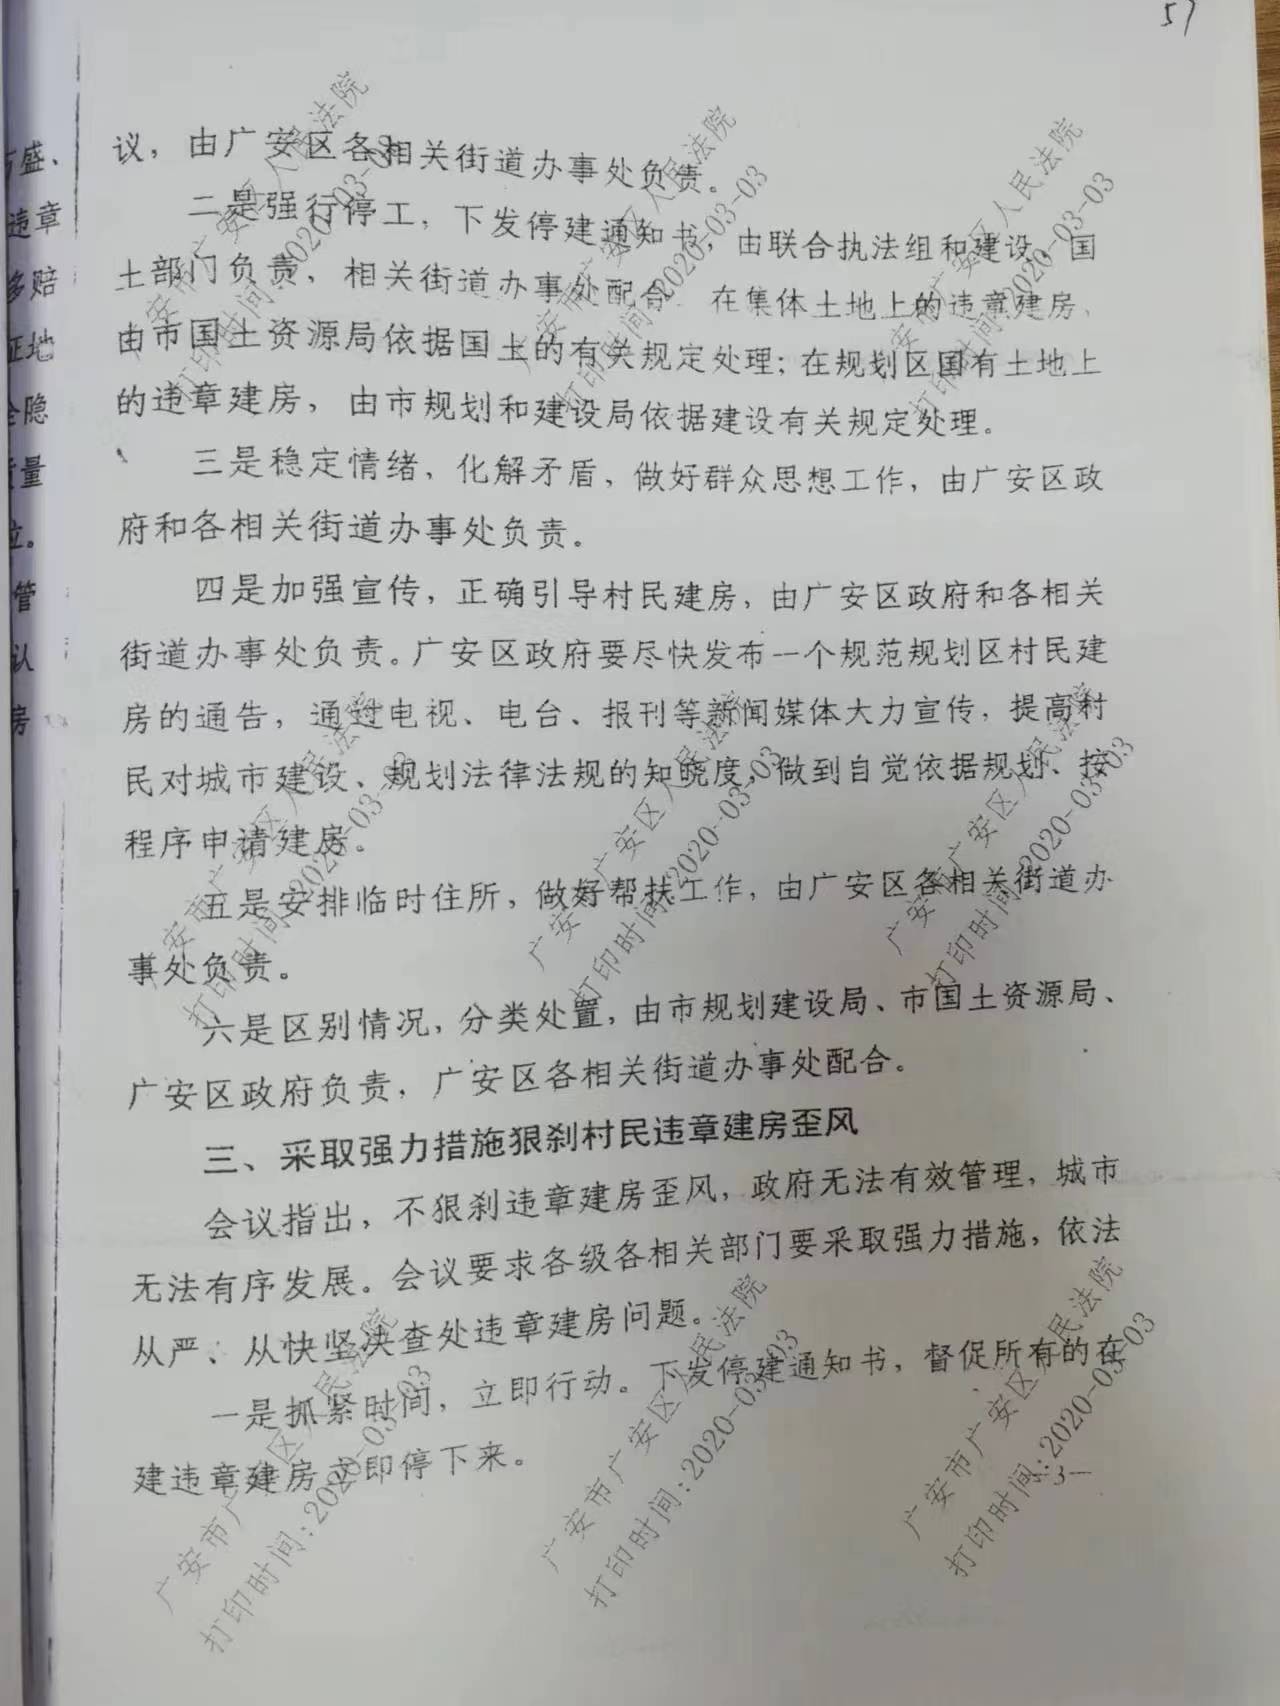 57
议，由广安区各相关街道办事处负责。
二是强行停工，下发停建通知书，由联合执法组和建设、国
土部门负责，相关街道办事处配合。在集体土地上的违章建房，
由市国土资源局依据国土的有关规定处理；在规划区国有土地上
的违章建房，由市规划和建设局依据建设有关规定处理。
三是稳定情绪，化解矛盾，做好群众思想工作，由广安区政
府和各相关街道办事处负责。
四是加强宣传，正确引导村民建房，由广安区政府和各相关
街道办事处负责。广安区政府要尽快发布一个规范规划区村民建
房的通告，通过电视、电台、报刊等新闻媒体大力宣传，提高村
民对城市建设、规划法律法规的知晓度，做到自觉依据规划、按
程序申请建房。
五是安排临时住所，做好帮扶工作，由广安区各相关街道办
事处负责。
六是区别情况，分类处置，由市规划建设局、市国土资源局、
广安区政府负责，广安区各相关街道办事处配合。
三、采取强力措施狠刹村民违章建房歪风
会议指出，不狠刹违章建房歪风，政府无法有效管理，城市
无法有序发展。会议要求各级各相关部门要采取强力措施，依法
从严、从快坚决查处违章建房问题。
一是抓紧时间，立即行动。下发停建通知书，督促所有的在
建违章建房立即停下来。
-3-
盛、
违章
多赔
正地
隐
量
位。
管
认
房
广安市广安区人民法院
打印时间:2020-03-03
广安市广安区人民法院
打印时间:2020-03-03
广安市广安区人民法院
打印时间:2020-03-03
广安市广安区人民法院
打印时间:2020-03-03
广安市广安区人民法院
打印时间:2020-03-03
广安市广安区人民法院
打印时间:2020-03-03
广安市广安区人民法院
打印时间:2020-03-03
广安市广安区人民法院
打印时间:2020-03-03
广安市广安区人民法院
打印时间:2020-03-03